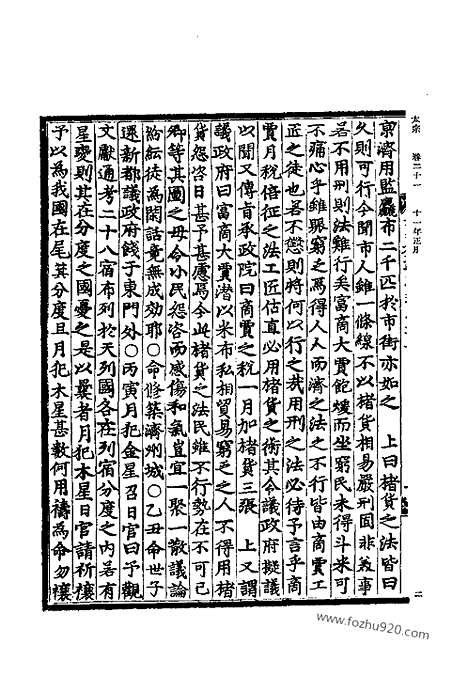 太宗 卷二十一 十一年正月
二
京濟用監麤布二千匹於市街亦如之 上曰楮貨之法皆曰
久則可行今聞市人雖一條線不以楮貨相易嚴刑固非美事
若不用刑則法難行矣富商大賈飽煖而坐窮民未得斗米可
不痛心乎雖鰥窮之爲得人人而濟之法之不行皆由商賈工
匠之徒也若不懲則將何以行之哉用刑之法必待予言乎商
賈月稅倍征之法工匠估直必用楮貨之術其令議政府擬議
以聞又傳旨承政院曰商賈之稅一月加楮貨三張 上又謂
議政府曰富商大賈潛以米布私相貿易窮乏之人不得用楮
貨怨咨日甚予甚慮焉今此楮貨之法民雖不行勢在不可已
卿等其圖之毋令小民怨咨而感傷和氣豈宜一聚一散議論
紛紜徒爲閑話竟無成効耶○命修築濟州城○乙丑命世子
還新都議政府餞于東門外○丙寅月犯金星召日官曰予觀
文獻通考二十八宿布列於天列國各在列宿分度之內若有
星變則其在分度之國憂之是以曩者月犯木星日官請祈禳
予以爲我國在尾箕分度且月犯木星甚數何用禱爲命勿禳
www.fozhu920.com